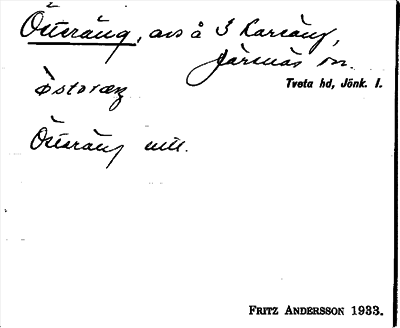 Österäng, avs å 3 Karsäng,
Järsnäs sn.
Tveta hd, Jönk. l.
Österäng
FRITZ ANDERSSON 1933.